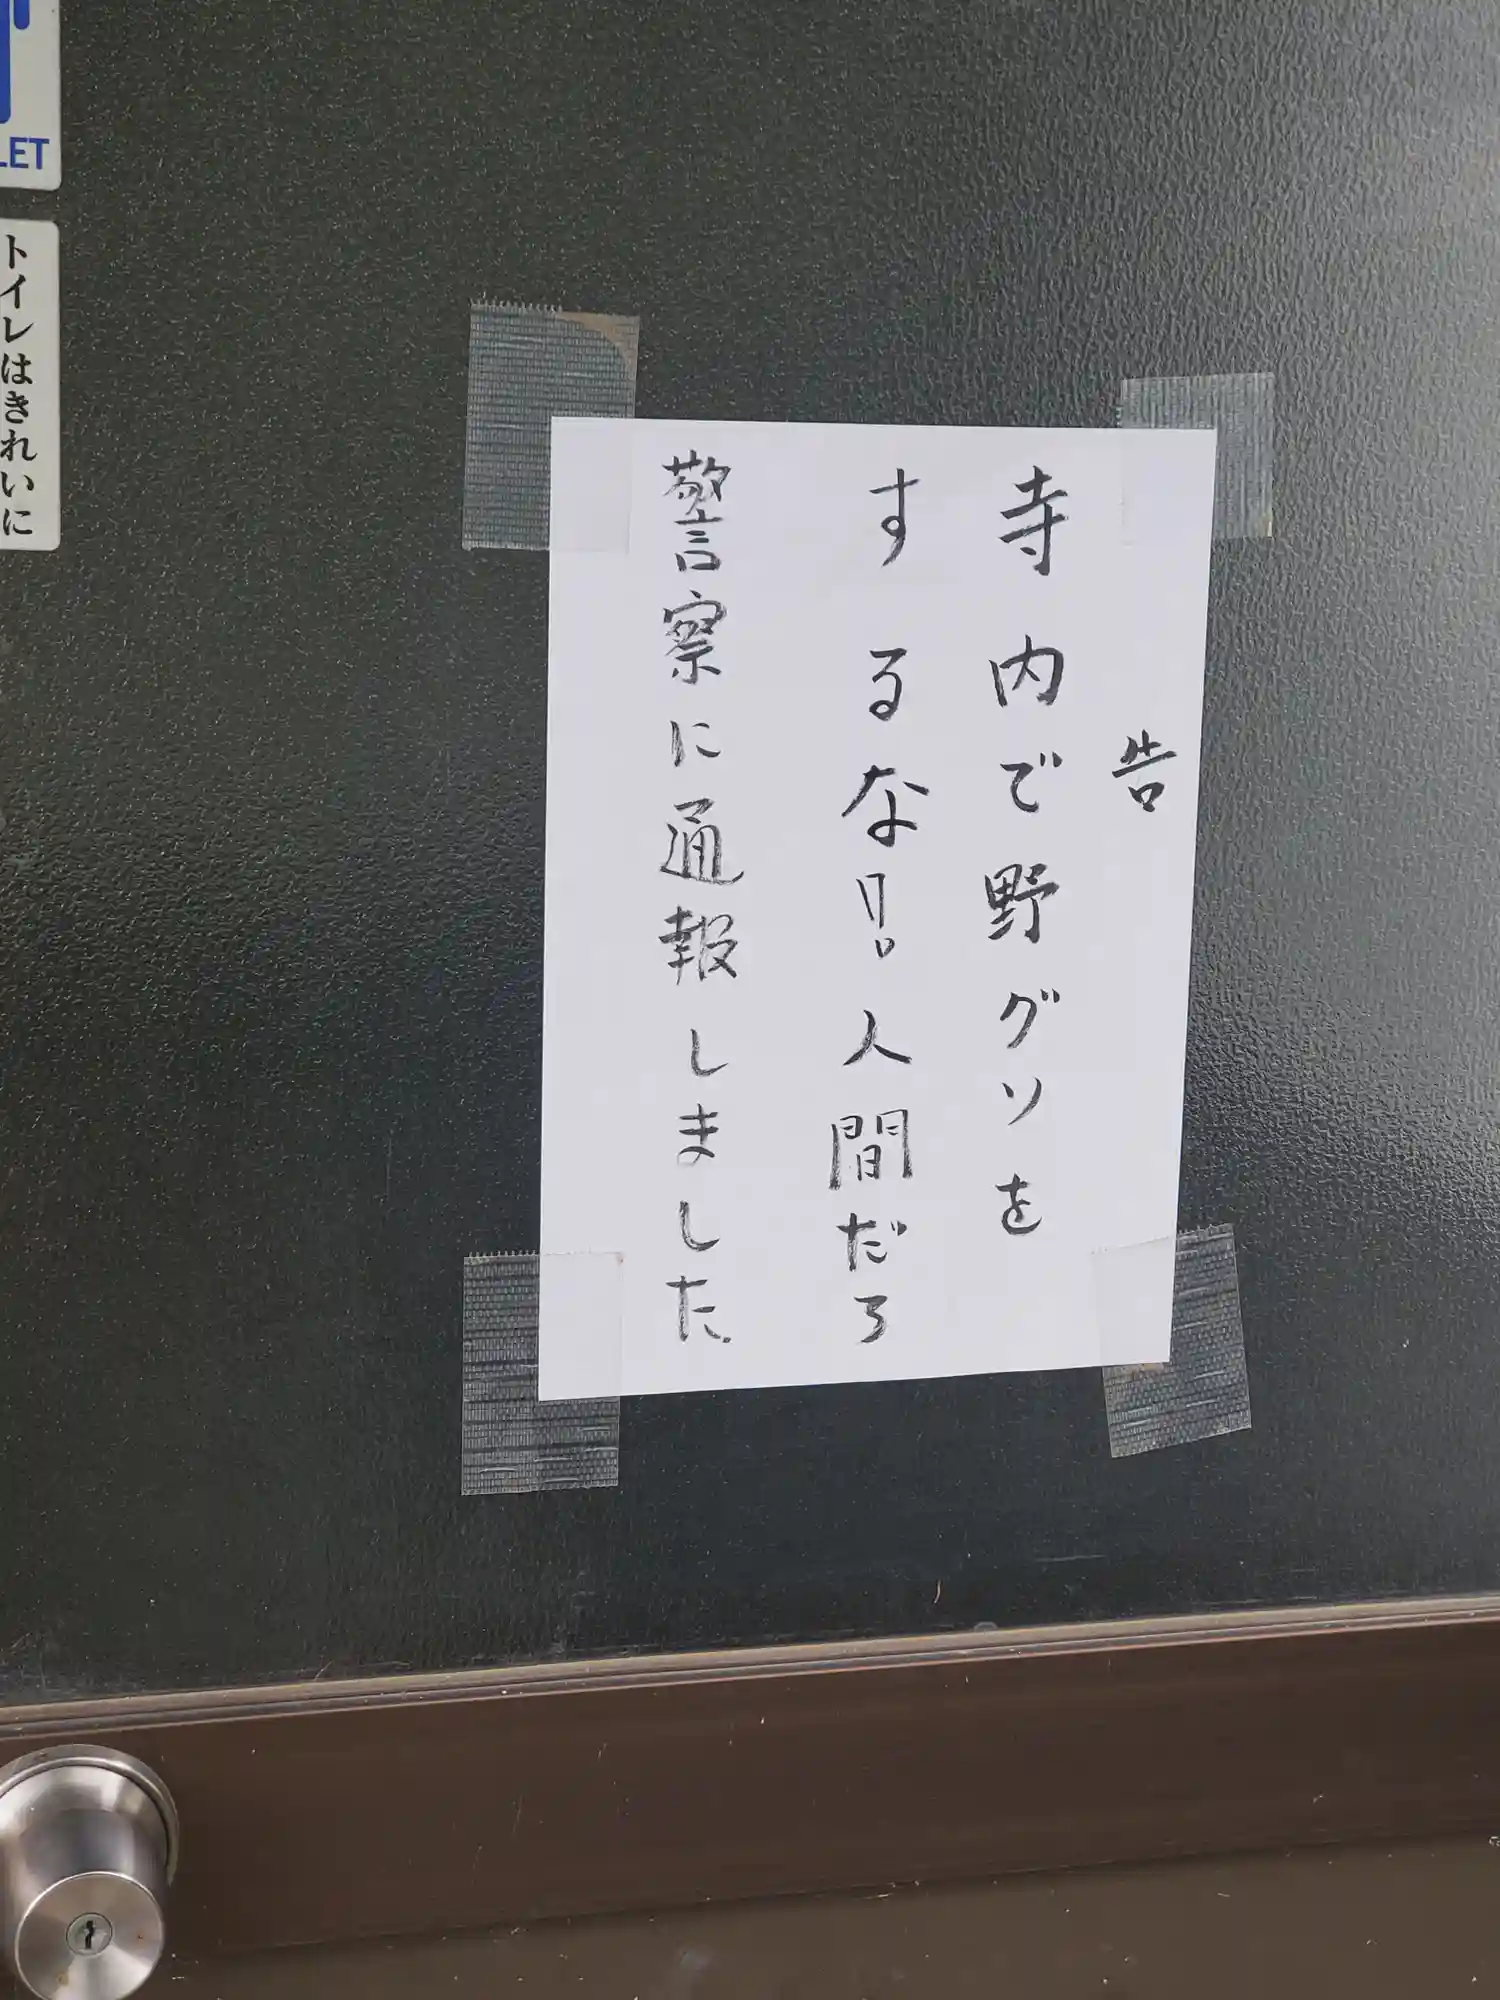 LET
トイレはきれいに
告
寺内で野グソを
するな!!人間だろ
警察に通報しました